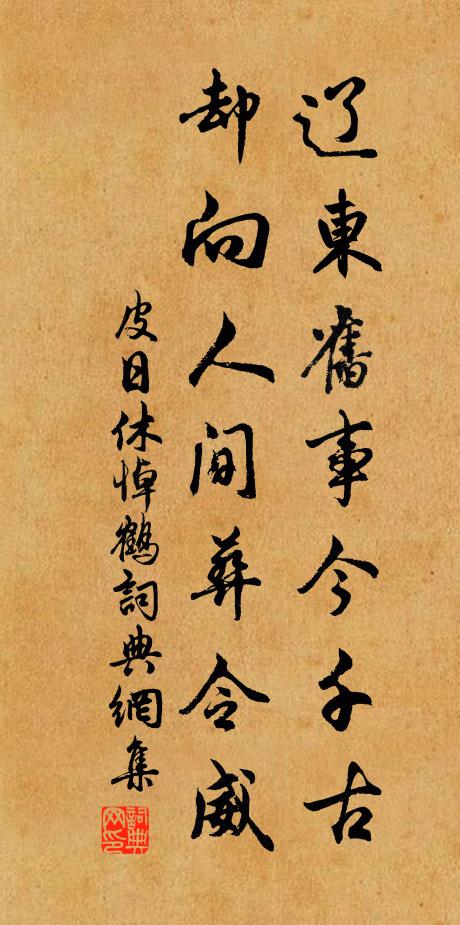 辽東舊事今千古
却向人间葬令威
皮日休悼鶴詞典網集
詞典网印